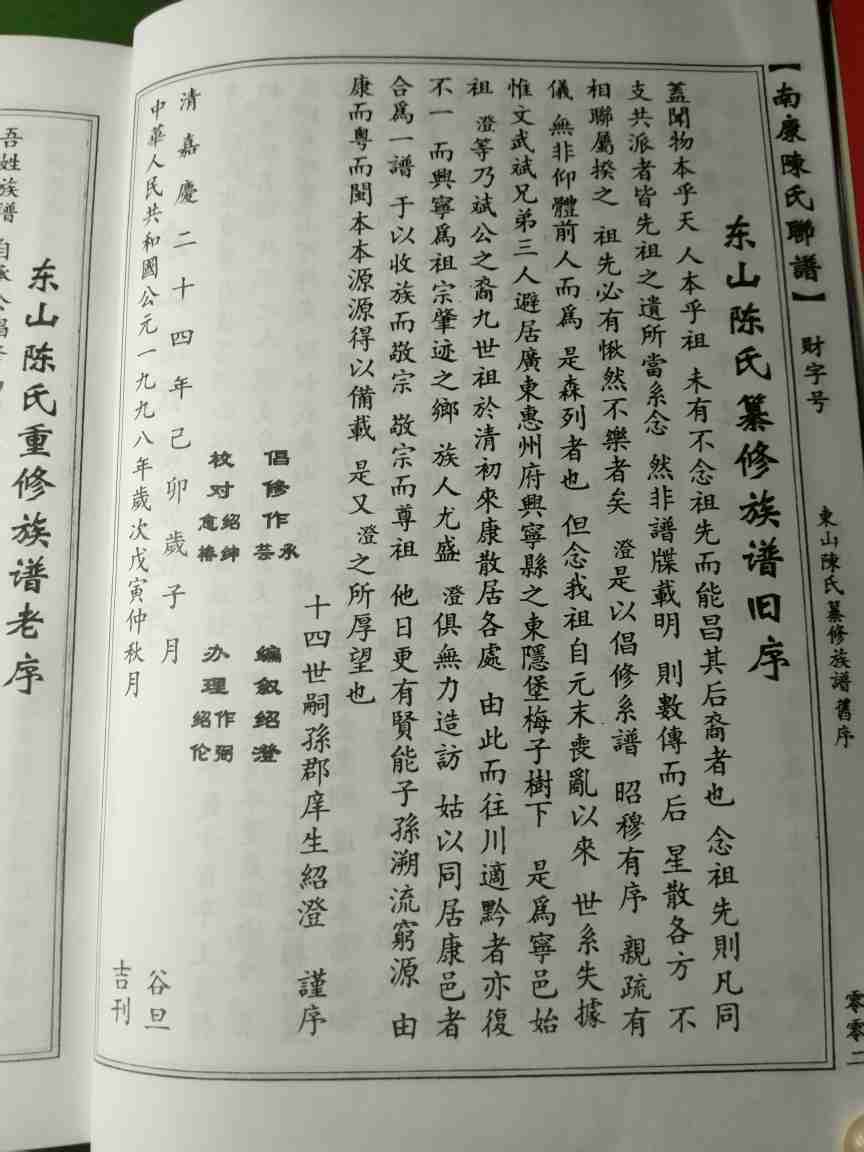 【南康陳氏聯譜】 财字号 東山陳氏纂修族譜舊序 零零二
东山陈氏纂修族谱旧序
蓋聞物本乎天 人本乎祖 未有不念祖先而能昌其后裔者也 念祖先則凡同
支共派者皆先祖之遺所當系念 然非譜牒載明 則數傳而后 星散各方 不
相聯屬揆之 祖先必有愀然不樂者矣 澄是以倡修系譜 昭穆有序 親疏有
儀 無非仰體前人而爲 是森列者也 但念我祖自元末喪亂以來 世系失據
惟文武斌兄弟三人避居廣東惠州府興寧縣之東隱堡梅子樹下 是爲寧邑始
祖 澄等乃斌公之裔九世祖於清初來康散居各處 由此而往川適黔者亦復
不一 而興寧爲祖宗肇迹之鄉 族人尤盛 澄俱無力造訪 姑以同居康邑者
合爲一譜 于以收族而敬宗 敬宗而尊祖 他日更有賢能子孫溯流窮源 由
康而粵而閩本本源源得以備載 是又 澄之所厚望也
十四世嗣孫郡庠生紹澄 謹序
倡修作 承芸 編叙绍澄
校对 绍绅 意椿 办理 作弼 绍伦
清嘉慶二十四年己卯歲子月 谷旦
中華人民共和國公元一九九八年歲次戊寅仲秋月 吉刊
东山陈氏重修族谱老序
吾姓族譜